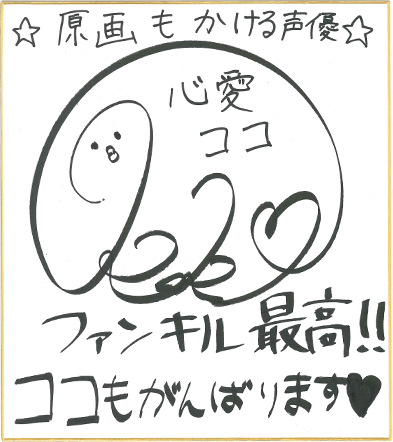 ☆原画もかける声優☆
心愛
ココ
ファンキル最高!!
ココもがんばります♥